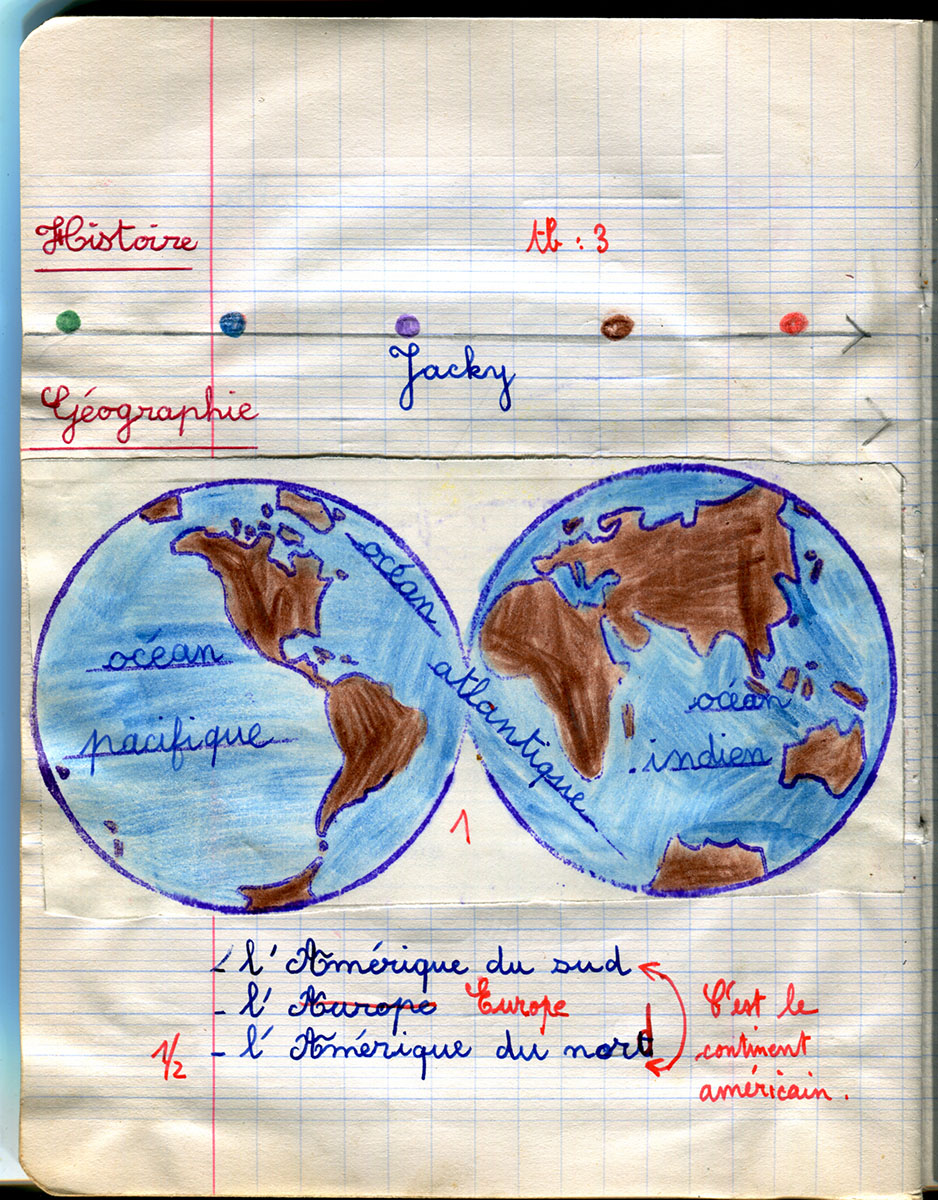 Histoire
tb : 3
Jacky
Géographie
océan
pacifique
océan
atlantique
océan
indien
1
- l' Amérique du sud
- l' Aurope Europe
- l' Amérique du nord
1/2
C'est le
continent
américain.